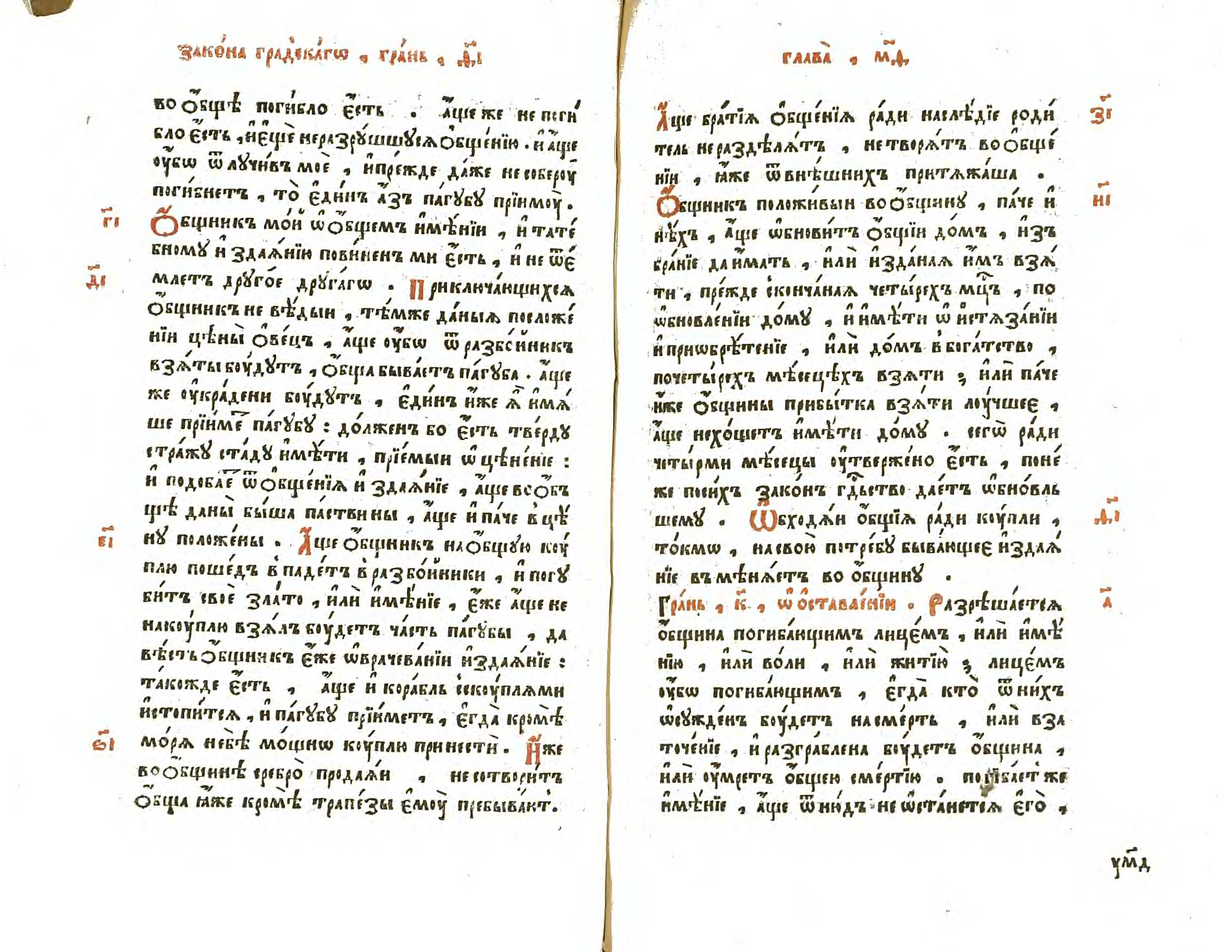 Зако́на градска́гѡ , гра́нь , ѳ҃і
во ѻ҆́бщѣ поги́бло є҆́сть . а҆́ще же не поги́
бло є҆́сть , и҆ є҆щѐ не разрꙋшшꙋсѧ ѻ҆бще́нїю . и҆ а҆́ще
ᲂу҆́бѡ ѿлꙋчи́въ моѐ , и҆ пре́жде да́же не соберꙋ̀
поги́бнетъ , то̀ є҆ди́нъ а҆́зъ па́гꙋбꙋ прїимꙋ̀ .
г҃і
Ѻ҆́бщникъ мо́й ѡ҆ ѻ҆́бщемъ и҆мѣ́нїи , и҆ татé
бномꙋ и҆ здаѧ́нїю пови́ненъ ми є҆́сть , и҆ не ѿе́
д҃і
млетъ дрꙋго́е дрꙋга́гѡ . Приключа́ющихсѧ
ѻ҆́бщникъ не вѣ́дыи , тѣ́мже да́ныѧ положе́
нїи цѣны̀ ѻ҆ве́цъ , а҆́ще ᲂу҆́бѡ ѿ разбо́йникъ
взѧ́ты бꙋ́дꙋтъ , ѻ҆́бща быва́етъ па́гꙋба . а҆́ще
же ᲂу҆кра́дени бꙋ́дꙋтъ , є҆ди́нъ и҆́же ѧ҆̀ и҆мѧ́
ше прїи́ме па́гꙋбꙋ : до́лженъ бо є҆́сть тве́рдꙋ
стра́жꙋ ста́дꙋ и҆мѣ́ти , прїе́мыи ѡ҆цѣне́нїе :
и҆ подоба́е ѿ ѻ҆бще́нїѧ и҆ здаѧ́нїе , а҆́ще во ѻ҆́б
щѣ даны̀ бы́ша па́ствины , а҆́ще и҆ па́че в цѣ́
є҃і
нꙋ положе́ны . А҆́ще ѻ҆́бщникъ на ѻ҆́бщꙋю кꙋ́
плю поше́дъ в паде́тъ в разбо́йники , и҆ погꙋ
би́тъ своѐ зла́то , и҆лѝ и҆мѣ́нїе , є҆́же а҆́ще не
на кꙋ́плю взѧ́лъ бꙋ́детъ ча́сть па́гꙋбы , да
вѣ́сть ѻ҆́бщникъ є҆́же ѡ҆ врачева́нїи и҆здаѧ́нїе :
та́кожде є҆́сть , а҆́ще и҆ кора́бль с кꙋ́плѧми
и҆сто́питсѧ , и҆ па́гꙋбꙋ прїи́метъ , є҆гда̀ кромѣ̀
ѕ҃і
мо́рѧ не бѣ̀ мо́щнѡ кꙋ́плю принестѝ . И҆́же
во ѻ҆́бщинѣ сребро̀ продаѧ́и , не сотвори́тъ
ѻ҆́бща ꙗ҆́же кромѣ̀ трапе́зы є҆мꙋ̀ пребыва́ют .
глава̀ , м҃ѳ
з҃і
А҆́ще бра́тїѧ ѻ҆бще́нїѧ ра́ди наслѣ́дїе роди́
тель не раздѣлѧ́тъ , не творѧ́тъ во ѻ҆бще́
нїи , ꙗ҆́же ѿ внѣ́шнихъ притѧжа́ша .
и҃і
Ѻ҆́бщникъ положи́выи во ѻ҆́бщинꙋ , па́че и҆
нѣ́хъ , а҆́ще ѡ҆бнови́тъ ѻ҆́бщїи до́мъ , и҆з
бра́нїе да и҆́мать , и҆лѝ и҆зда́наѧ и҆́мъ взѧ́
ти , пре́жде сконча́наѧ четы́рехъ мц҃ъ , по
ѡ҆бновле́нїи до́мꙋ , и҆ и҆мѣ́ти ѡ҆ и҆стѧза́нїи
и҆ приѡбрѣ́тенїе , и҆лѝ до́мъ в бога́тство ,
по четы́рехъ мѣ́сецѣхъ взѧ́ти ; и҆лѝ па́че
и҆́же ѻ҆́бщины прибы́тка взѧ́ти лꙋ́чшее ,
а҆́ще не хо́щетъ и҆мѣ́ти до́мꙋ . сегѡ̀ ра́ди
четы́рми мѣ́сецы ᲂу҆тверже́но є҆́сть , поне́
же по си́хъ зако́нъ гдⷭ҇ьство дае́тъ ѡ҆бно́вль
ѳ҃і
шемꙋ . Ѡ҆бходѧ́и ѻ҆́бщїѧ ра́ди кꙋ́пли ,
то́кмѡ , на свою̀ потре́бꙋ быва́ющее и҆здаѧ́
нїе въмѣнѧ́етъ во ѻ҆́бщинꙋ .
а҃
Гра́нь , к҃ , ѡ҆ ѡ҆ставле́нїи . Разрѣша́етсѧ
ѻ҆́бщина погиба́ющимъ лице́мъ , и҆лѝ и҆мѣ́
нїю , и҆лѝ во́ли , и҆лѝ житїю̀ ; лице́мъ
ᲂу҆́бѡ погиба́ющимъ , є҆гда̀ кто̀ ѿ ни́хъ
ѡ҆сꙋжде́нъ бꙋ́детъ на сме́рть , и҆лѝ в за
точе́нїе , и҆ разгра́блена бꙋ́детъ ѻ҆́бщина ,
и҆лѝ ᲂу҆́мретъ ѻ҆́бщею сме́ртїю . погиба́ет же
и҆мѣ́нїе , а҆́ще ѿнꙋ́дъ не ѡ҆ста́нетсѧ є҆гѡ̀ ,
ум҃д